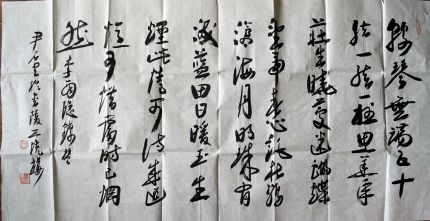 錦琴無端五十
弦一弦一柱思華年
莊生曉夢迷蝴蝶
望帝春心託杜鵑
滄海月明珠有
淚藍田日暖玉生
煙此情可待成追
憶只可惜當時已惘
然 李商隱錦琴
尹石書於金陵三